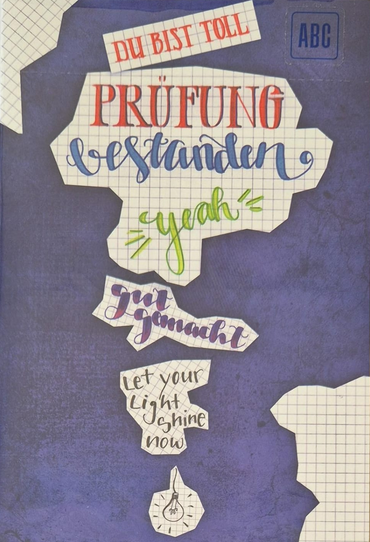 DU BIST TOLL
ABC
PRÜFUNG
bestanden
yeah
gut
gemacht
Let your
Light
shine
now